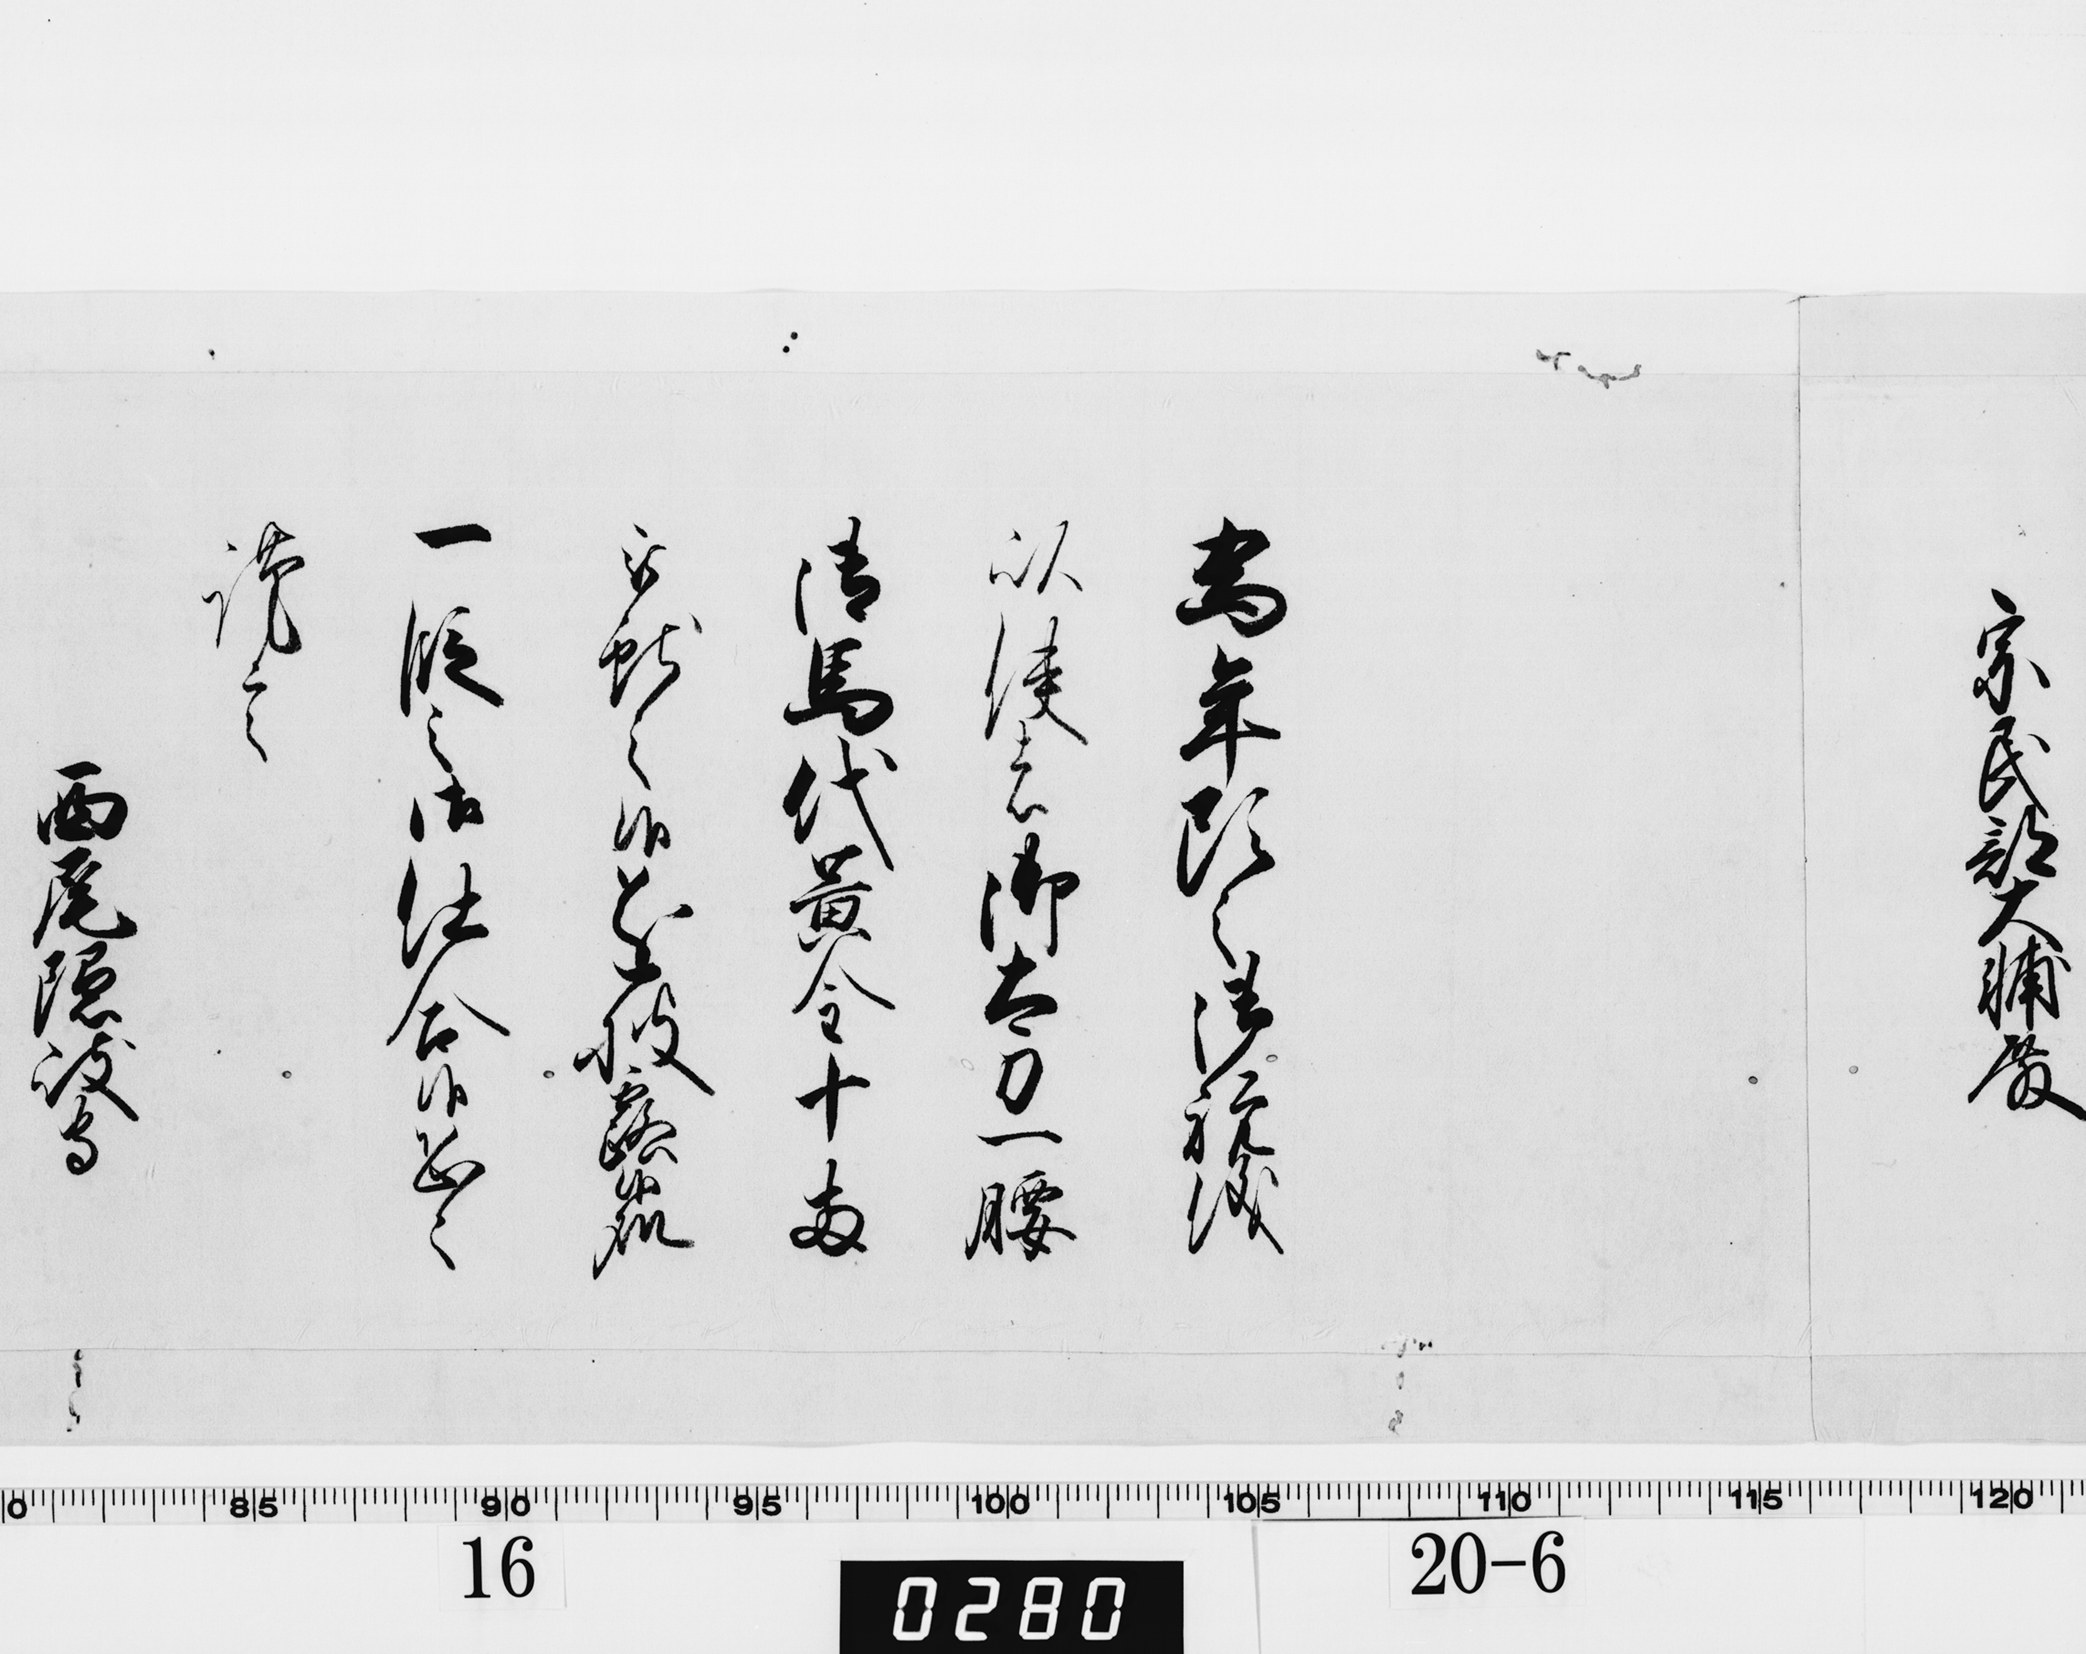 宗民部大輔殿
為年頭之御祝儀
以使者御太刀一腰
御馬代黄金十両
献之候遂披露候処
一段之御仕合候恐々
謹言
西尾隠岐守
0 85 90 95 100 105 110 115 120
16
20-6
0280